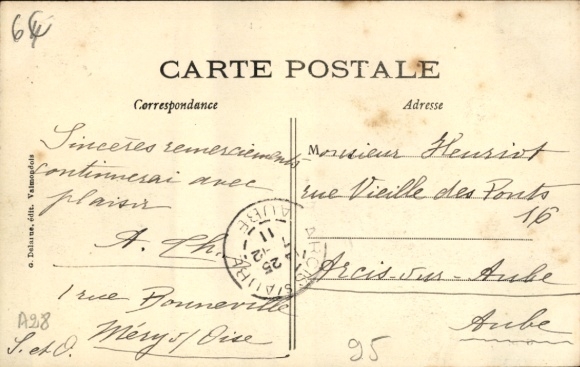 64
CARTE POSTALE
Correspondance
Adresse
Sincères remerciements
continuerai avec
plaisir
A. Ch.
1 rue Bonneville
Méry s/ Oise
S. et O.
A28
G. Delarue, édit. Valmondois
Monsieur Henriot
rue Vieille des Ponts
16
Arcis-sur-Aube
Aube
95
AUBE
25
11